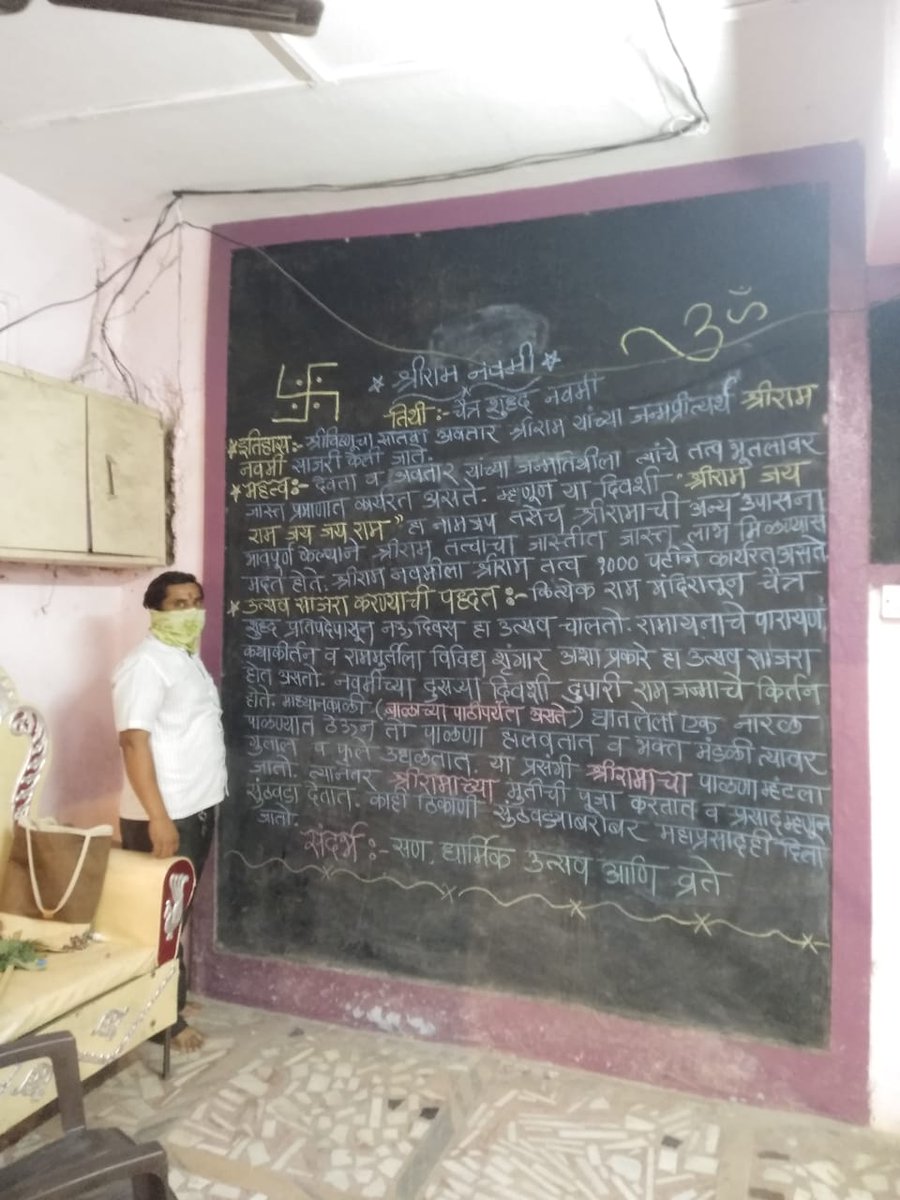 ॐ
* श्रीराम नवमी *
तिथी :- चैत्र शुद्ध नवमी
*इतिहास:- श्रीविष्णूचा सातवा अवतार श्रीराम यांच्या जन्मप्रीत्यर्थ श्रीराम
नवमी साजरी केली जाते.
*महत्व:- देवता व अवतार यांच्या जन्मतिथीला त्यांचे तत्व भूतलावर
जास्त प्रमाणात कार्यरत असते. म्हणून या दिवशी "श्रीराम जय
राम जय जय राम" हा नामजप तसेच श्रीरामाची अन्य उपासना
भावपूर्ण केल्याने श्रीराम तत्वाचा जास्तीत जास्त लाभ मिळण्यास
मदत होते. श्रीराम नवमीला श्रीराम तत्व १००० पटीने कार्यरत असते
* उत्सव साजरा करण्याची पद्धत :- कित्येक राम मंदिरातून चैत्र
शुद्ध प्रतिपदेपासून नऊ दिवस हा उत्सव चालतो. रामायनाचे पारायण,
कथाकीर्तन व राममुर्तीला विविध शृंगार अशा प्रकारे हा उत्सव साजरा
होत असतो. नवमीच्या दुसऱ्या दिवशी दुपारी राम जन्माचे किर्तन
होते. माध्यानकाळी (बाळाच्या पाठीपर्यंत असते) घातलेला एक नारळ
पाळण्यात ठेऊन तो पाळणा हालवतात व भक्त मंडळी त्यावर
गुलाल व फुले उधळतात. या प्रसंगी श्रीरामाचा पाळणा म्हंटला
जातो. त्यानंतर श्रीरामाच्या मुर्तीची पूजा करतात व प्रसाद म्हणून
सुंठवडा देतात. काही ठिकाणी सुंठवड्याबरोबर महाप्रसादही दिला
जातो.
संदर्भ :- सण, धार्मिक उत्सव आणि व्रते